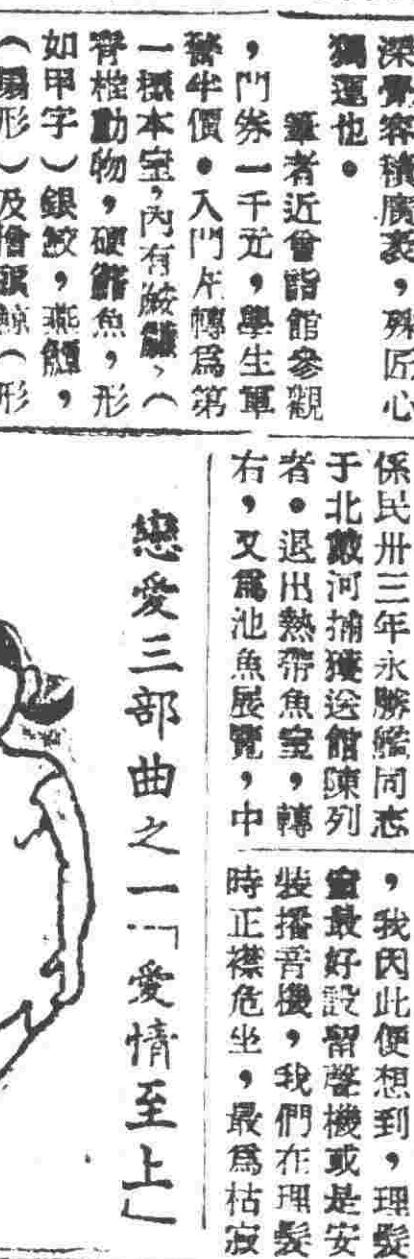 深覺容積廣袤，殊匠心
獨運也。
筆者近曾詣館參觀
，門券一千元，學生軍
警半價。入門左轉為第
一標本室，內有鮟鱇，（
脊椎動物，硬鱗魚，形
如甲字）銀鮫，燕魟，
（扇形）及檜頭鯨（形
係民卅三年永勝艦同志
于北戴河捕獲送館陳列
者。退出熱帶魚室，轉
右，又爲池魚展覽，中
，我因此便想到，理髮
室最好設留聲機或是安
裝播音機，我們在理髮
時正襟危坐，最爲枯寂
戀愛三部曲之一「愛情至上」